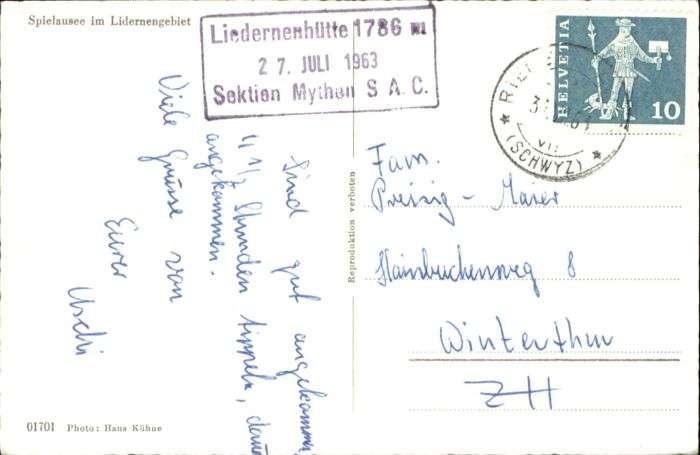 Spielausee im Lidernengebiet
Liedernenhütte 1786 m
27. JULI 1963
Sektion Mythen S A C.
HELVETIA
10
(SCHWYZ)
VII
Sind gut angekommen
4 1/2 Stunden tippeln, dann
angekommen.
Viele Grüsse von
Eurer
Uschi
Reproduktion verboten
Fam.
Preisig - Maier
Hainbuchenweg 8
Winterthur
ZH
01701 Photo: Hans Kühne